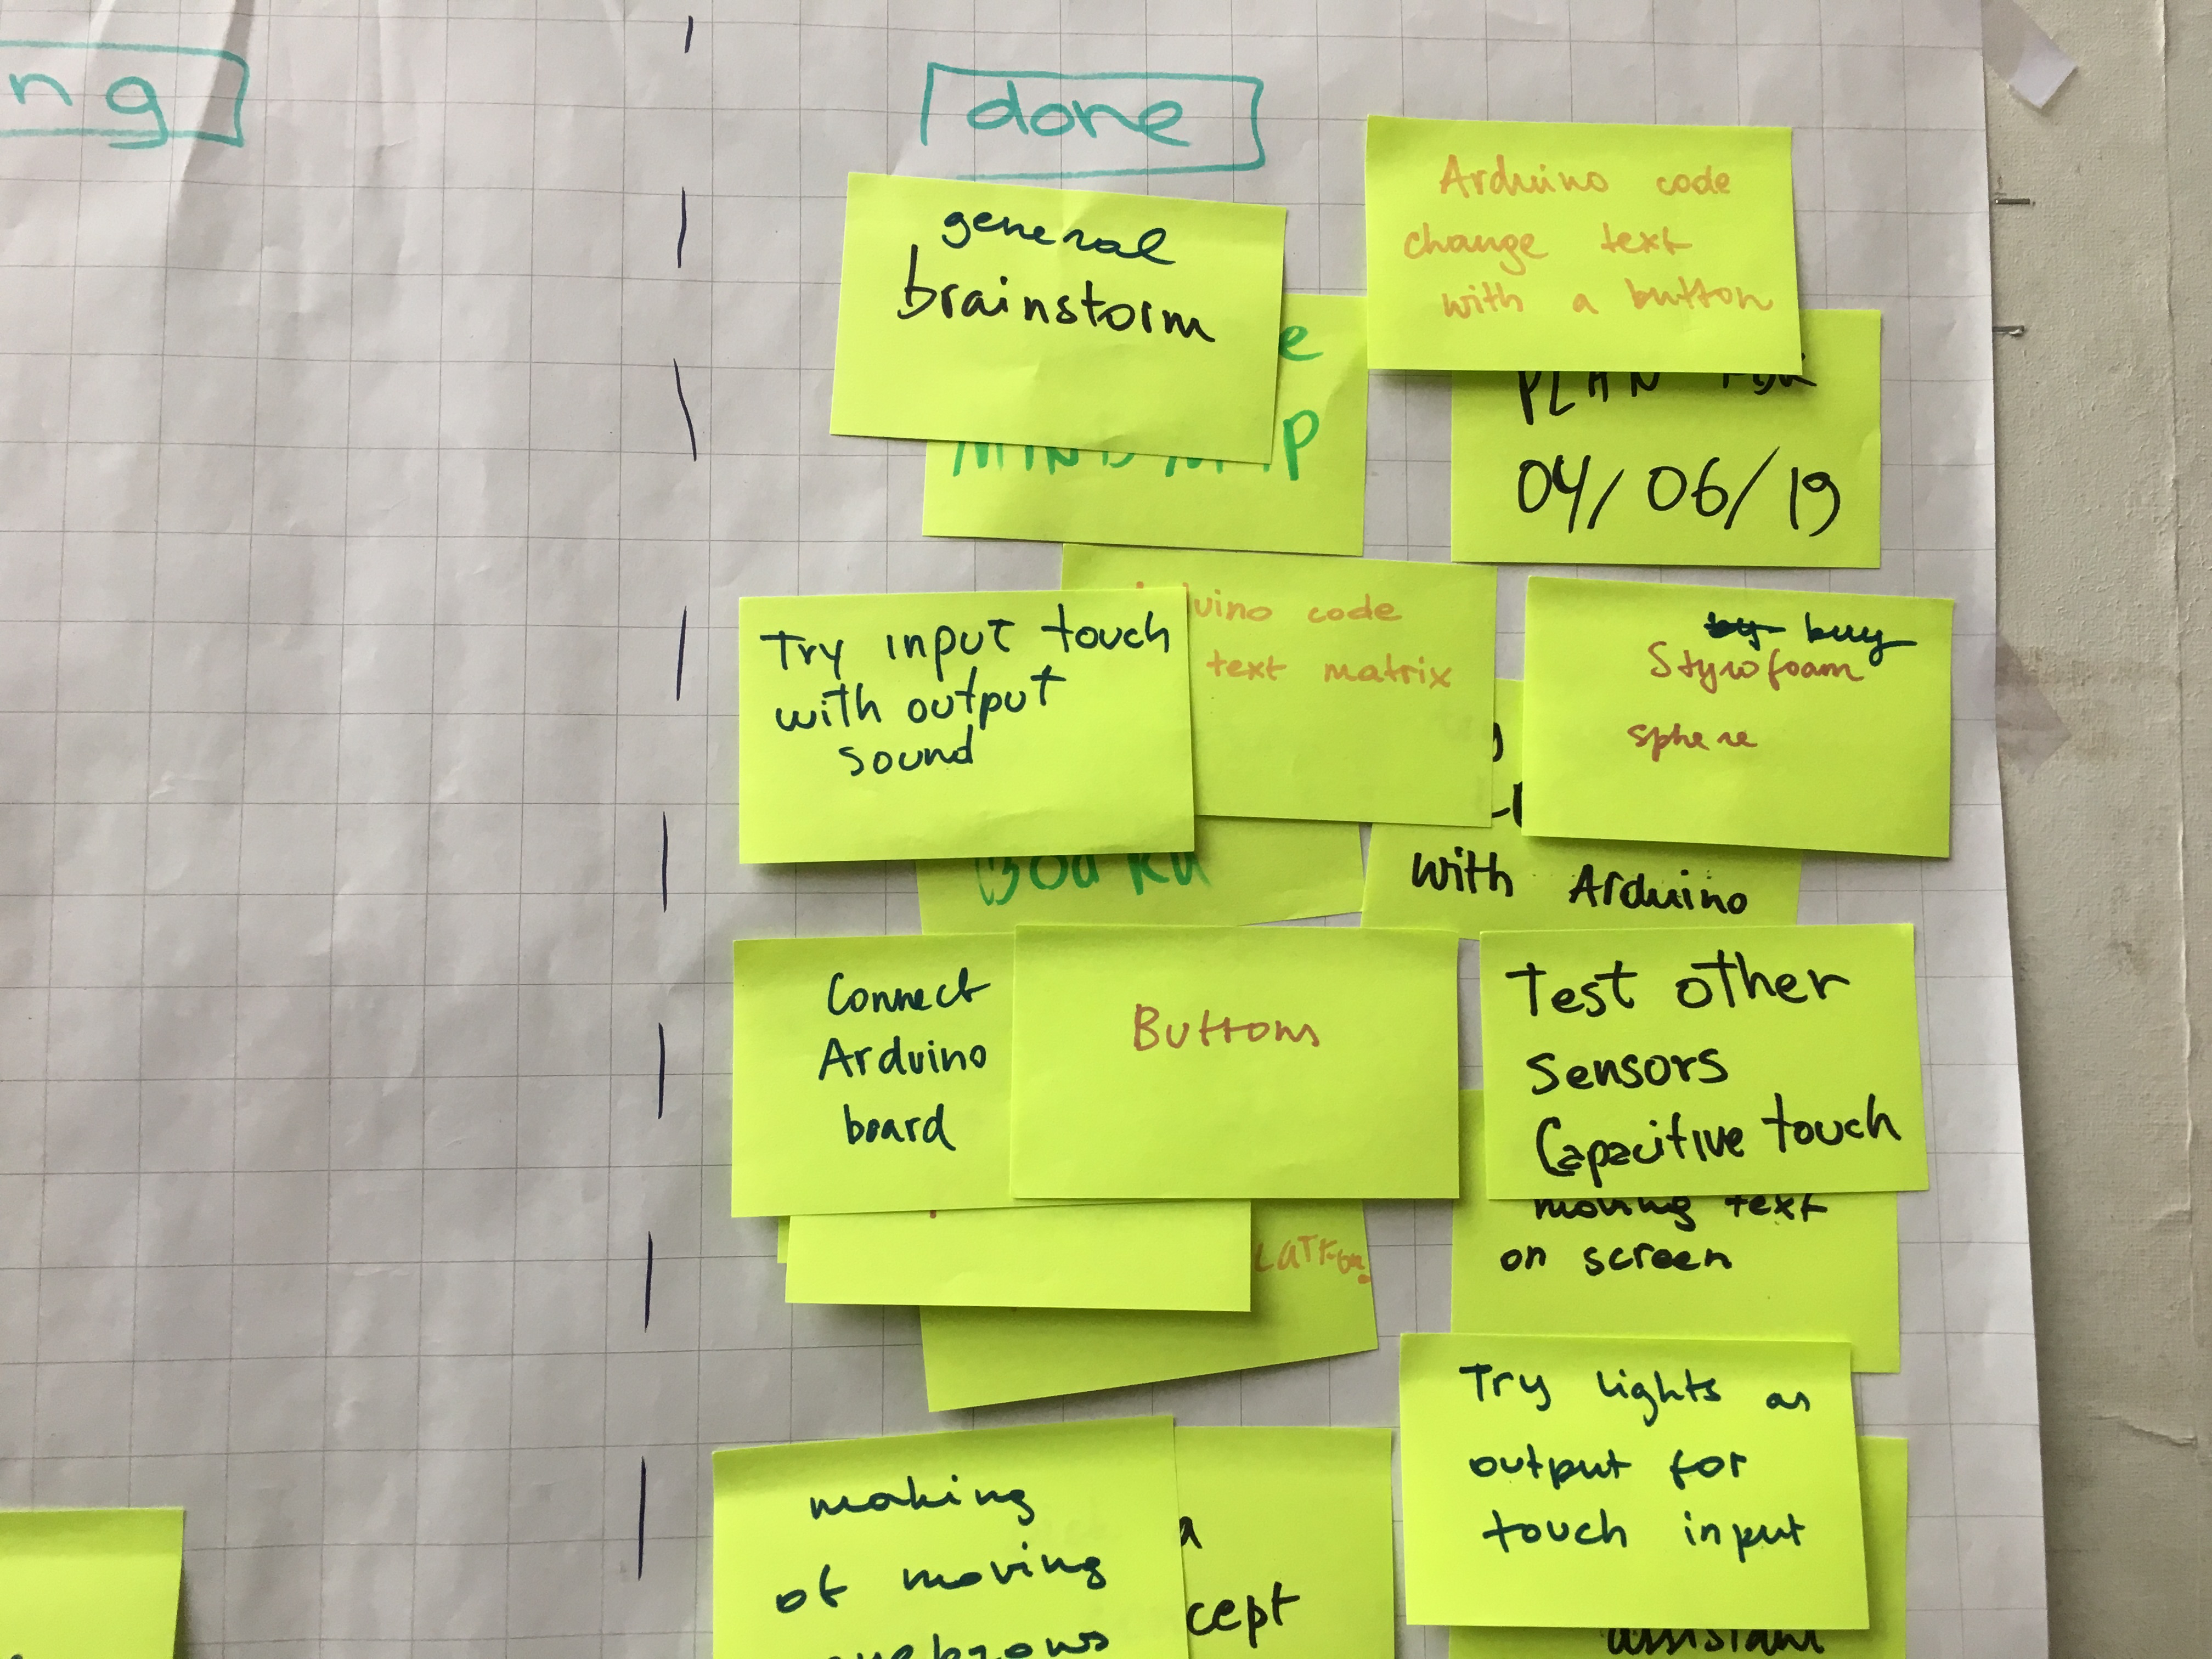 ng
done
general
brainstorm
Arduino code
change text
with a button
e
MIND MAP
PLAN FOR
04/06/19
Try input touch
with output
sound
uino code
text matrix
buy
Styrofoam
sphere
with Arduino
Connect
Arduino
board
Buttons
Test other
sensors
Capacitive touch
moving text
on screen
Try lights as
output for
touch input
making
of moving
eyebrows
a
cept
assistant